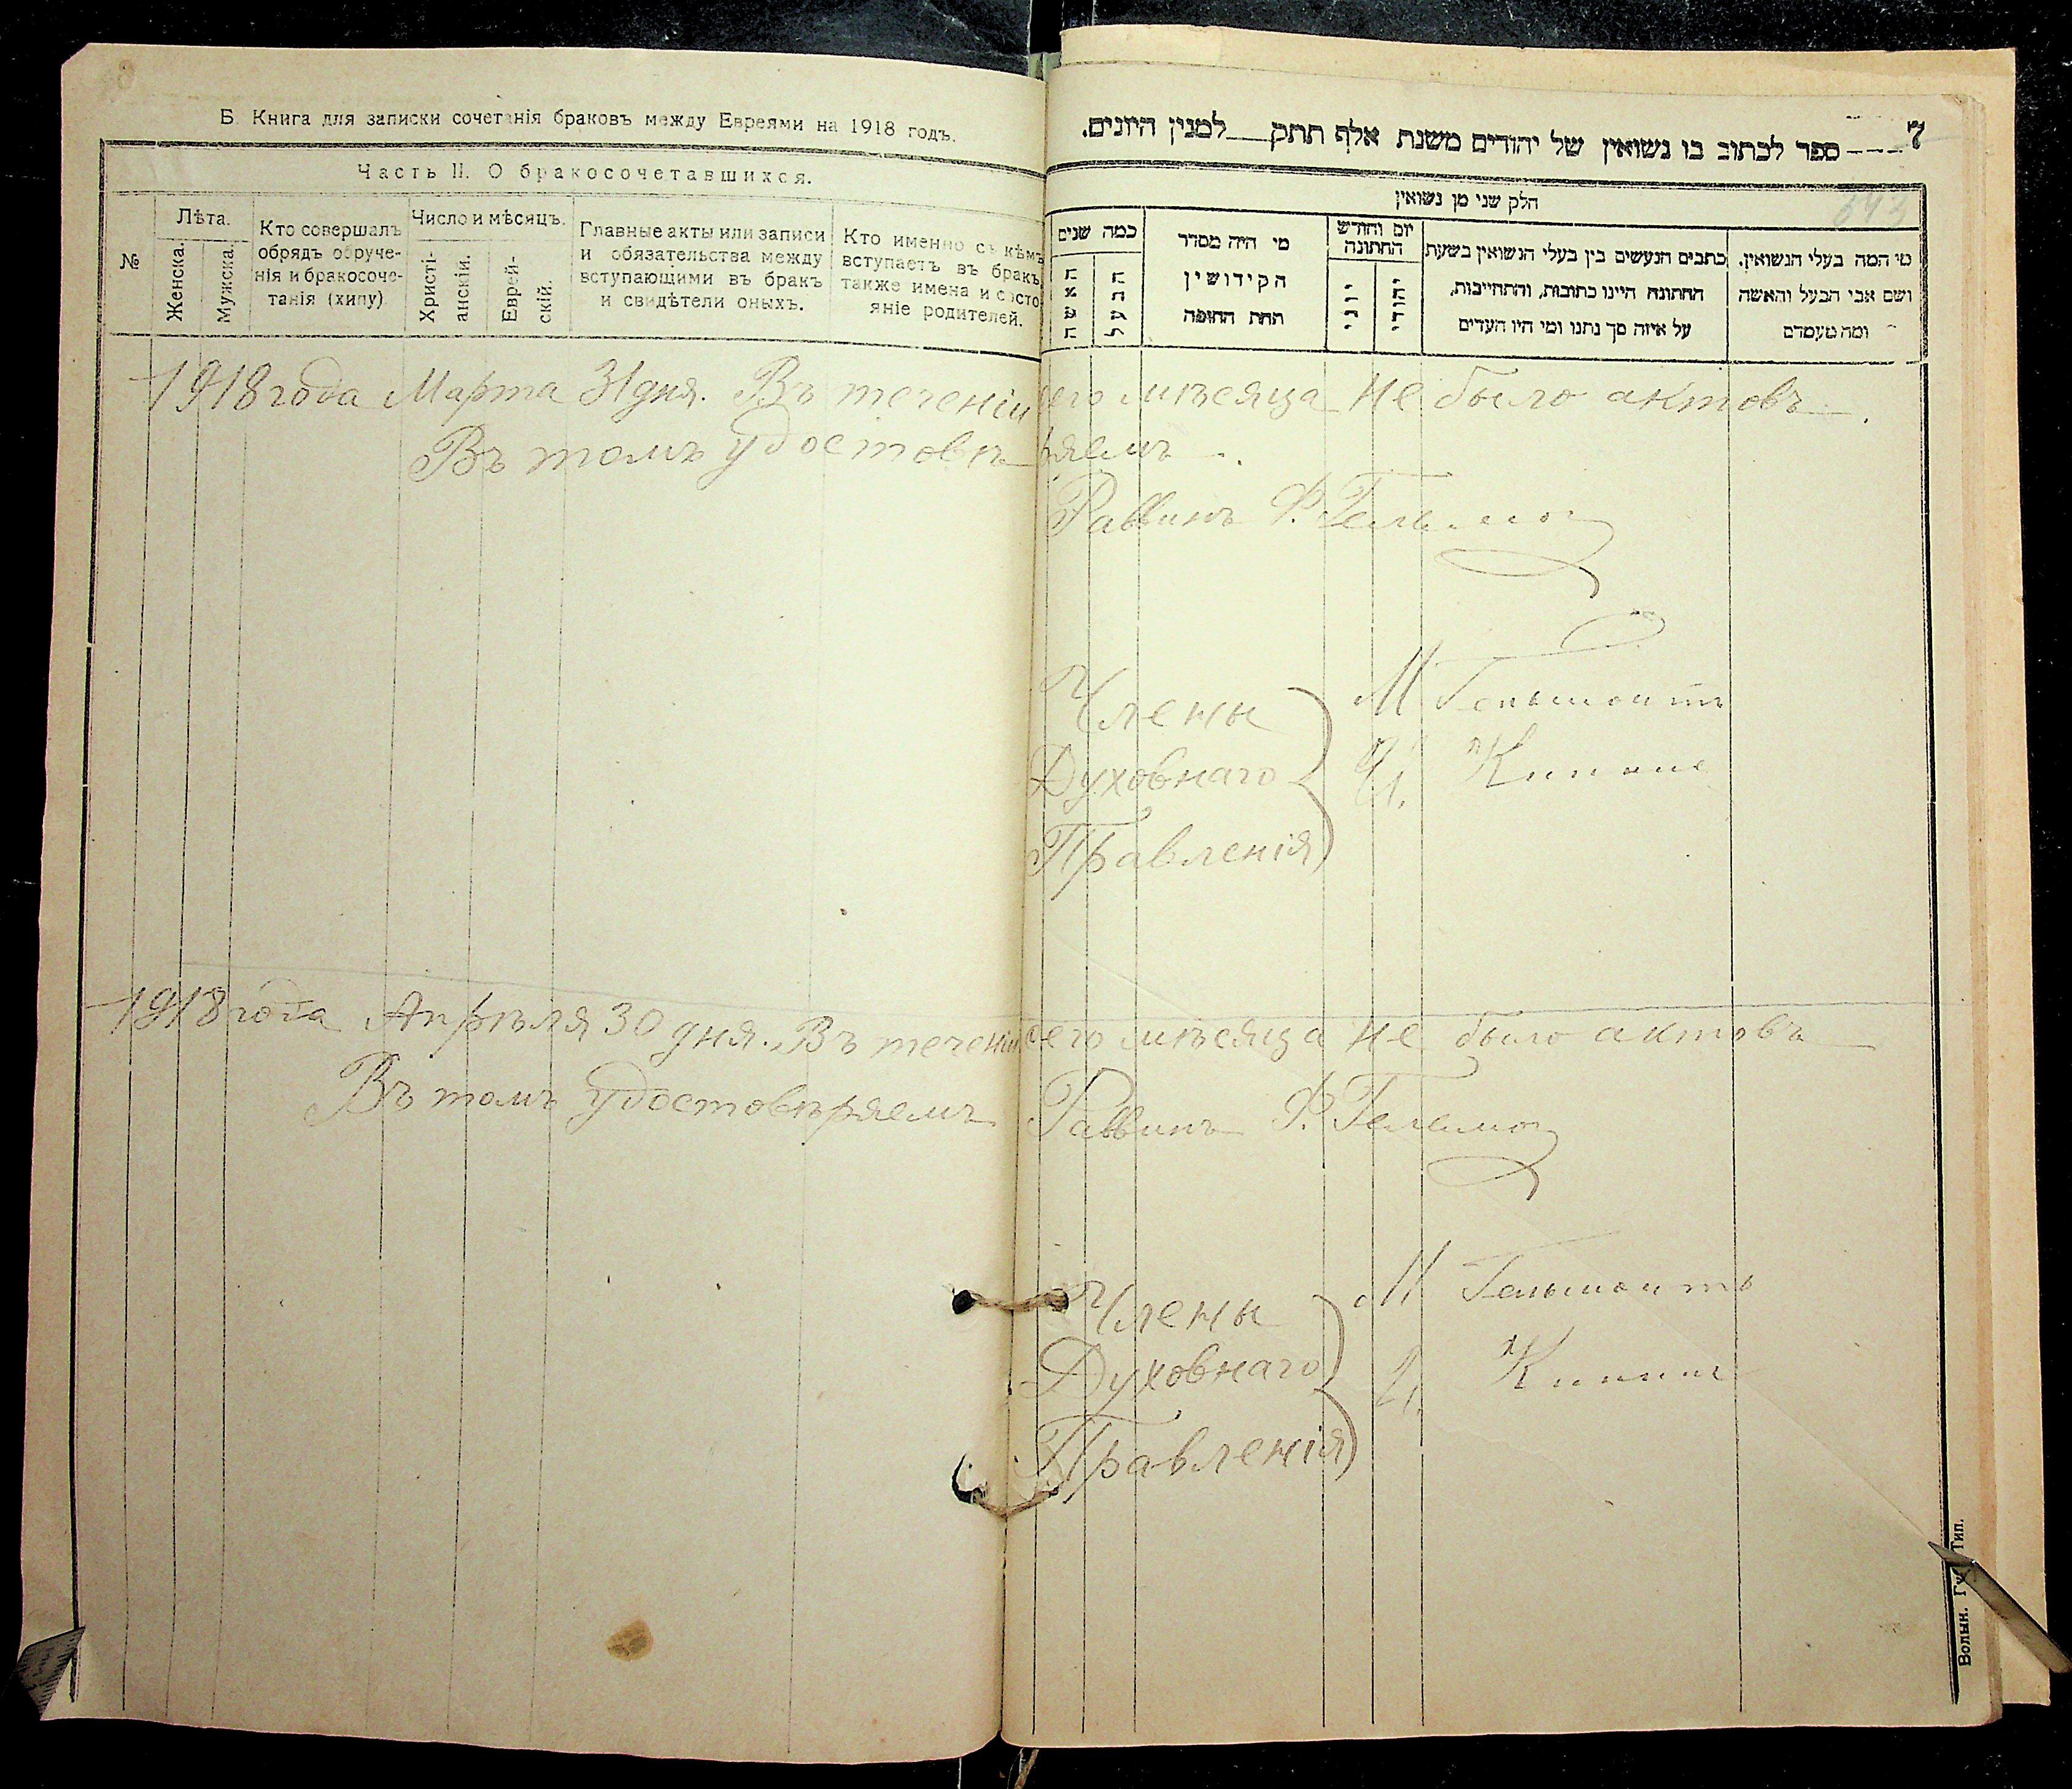 Б. Книга для записки сочетанія браковъ между Евреями на 1918 годъ.
Часть II. О бракосочетавшихся.
№
Лѣта.
Женска.
Мужска.
Кто совершалъ
обрядъ обруче-
нія и бракосоче-
танія (хипу)
Число и мѣсяцъ.
Христі-
анскій.
Еврей-
скій.
Главные акты или записи
и обязательства между
вступающими въ бракъ
и свидѣтели оныхъ.
Кто именно съ кѣмъ
вступаетъ въ бракъ,
также имена и состо-
яніе родителей.
7
ספר לכתוב בו נשואין של יהודים משנת אלף תתק למנין היונים.
643
חלק שני מן נשואין
כמה שנים
האשה
הבעל
מי היה מסדר
הקידושין
תחת החופה
יום וחודש
החתונה
יוני
יהודי
כתבים הנעשים בין בעלי הנשואין בשעת
החתונה היינו כתובות, והתחייבות,
על איזה סך נתנו ומי היו העדים
מי המה בעלי הנשואין,
ושם אבי הבעל והאשה
ומה מעמדם
1918 года Марта 31 дня. Въ теченіи сего мѣсяца не было актовъ.
Въ томъ удостовѣряемъ.
Раввинъ Ф.
Члены
Духовнаго
Правленія
М
1918 года Апрѣля 30 дня. Въ теченіи сего мѣсяца не было актовъ
Въ томъ удостовѣряемъ Раввинъ Ф.
Члены
Духовнаго
Правленія
М
Волын. Губ. Тип.